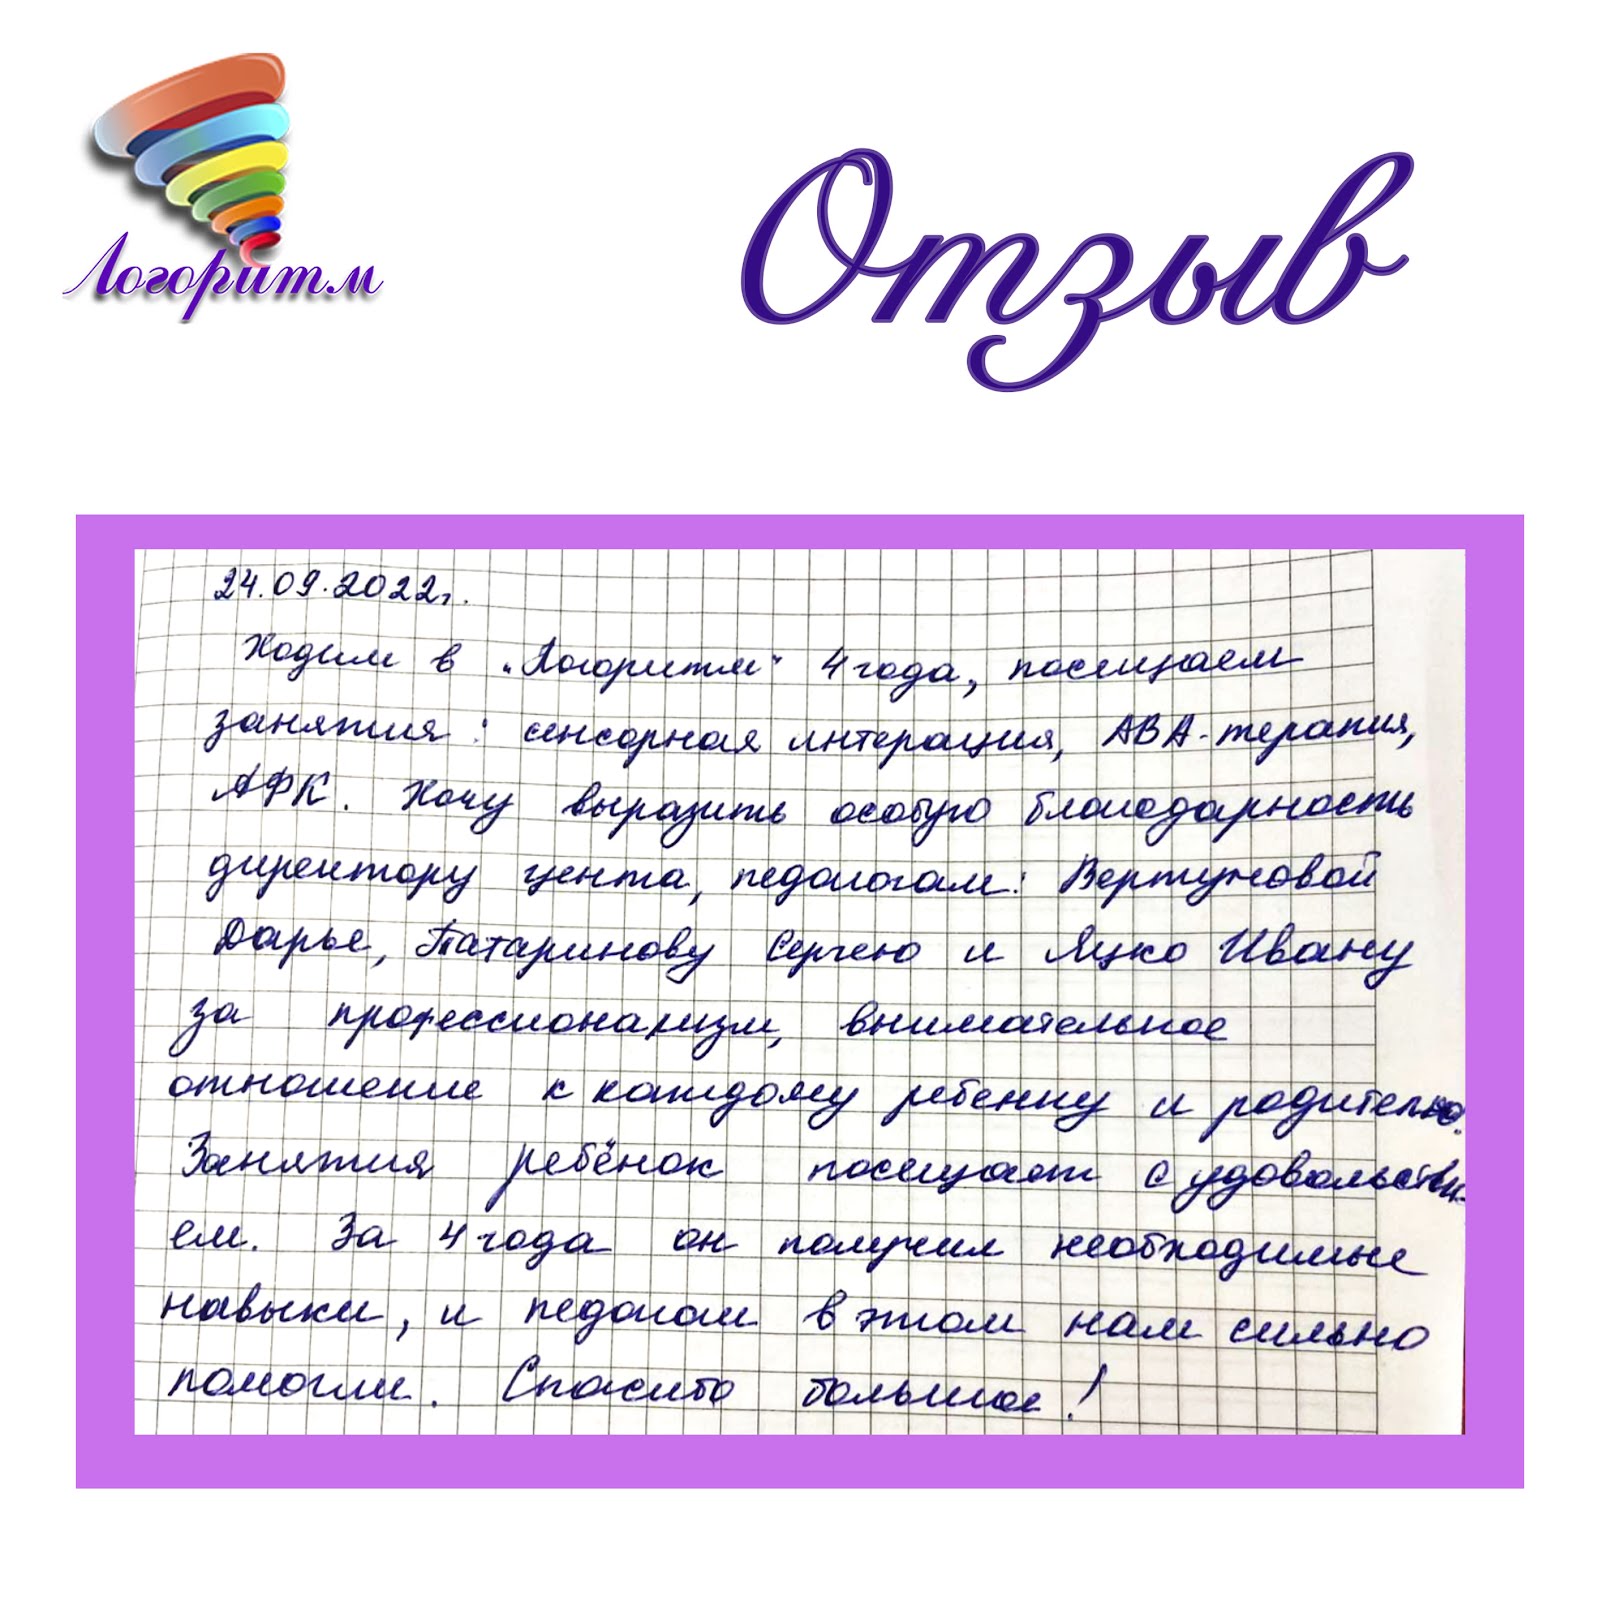 Логоритм
Отзыв
24.09.2022г.
Ходим в "Логоритм" 4 года, посещаем
занятия: сенсорная интерация, АВА-терапия,
АФК. Хочу выразить особую благодарность
директору цента, педагогам: Вертуновой
Дарье, Татаринову Сергею и Яцко Ивану
за профессионализм, внимательное
отношение к каждому ребенку и родителю.
Занятия ребёнок посещает с удовольстви-
ем. За 4 года он получил необходимые
навыки, и педагоги в этом нам сильно
помогли. Спасибо большое!